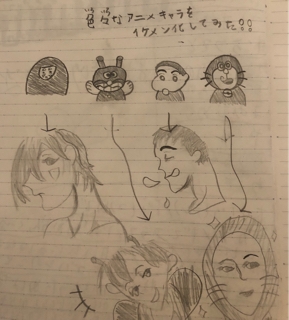 色々なアニメキャラを
イケメン化してみた!!